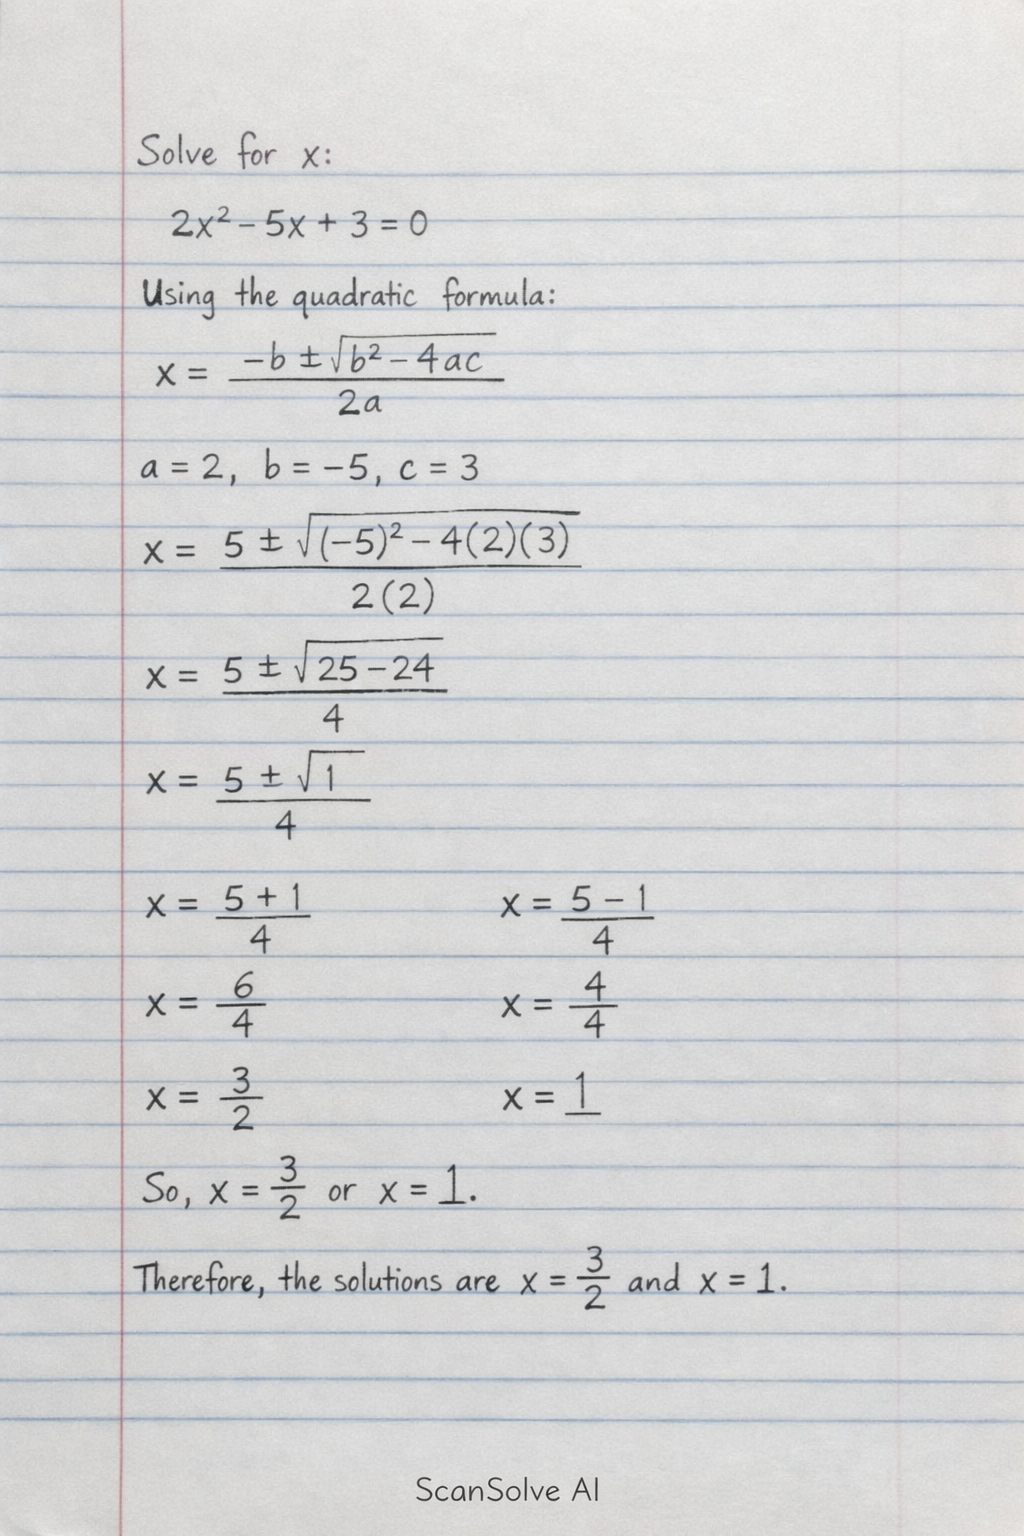 Solve for x:
2x² - 5x + 3 = 0
Using the quadratic formula:
x = (-b ± √(b² - 4ac)) / 2a
a = 2, b = -5, c = 3
x = (5 ± √((-5)² - 4(2)(3))) / 2(2)
x = (5 ± √(25 - 24)) / 4
x = (5 ± √1) / 4
x = (5 + 1) / 4    x = (5 - 1) / 4
x = 6/4    x = 4/4
x = 3/2    x = 1
So, x = 3/2 or x = 1.
Therefore, the solutions are x = 3/2 and x = 1.
ScanSolve AI